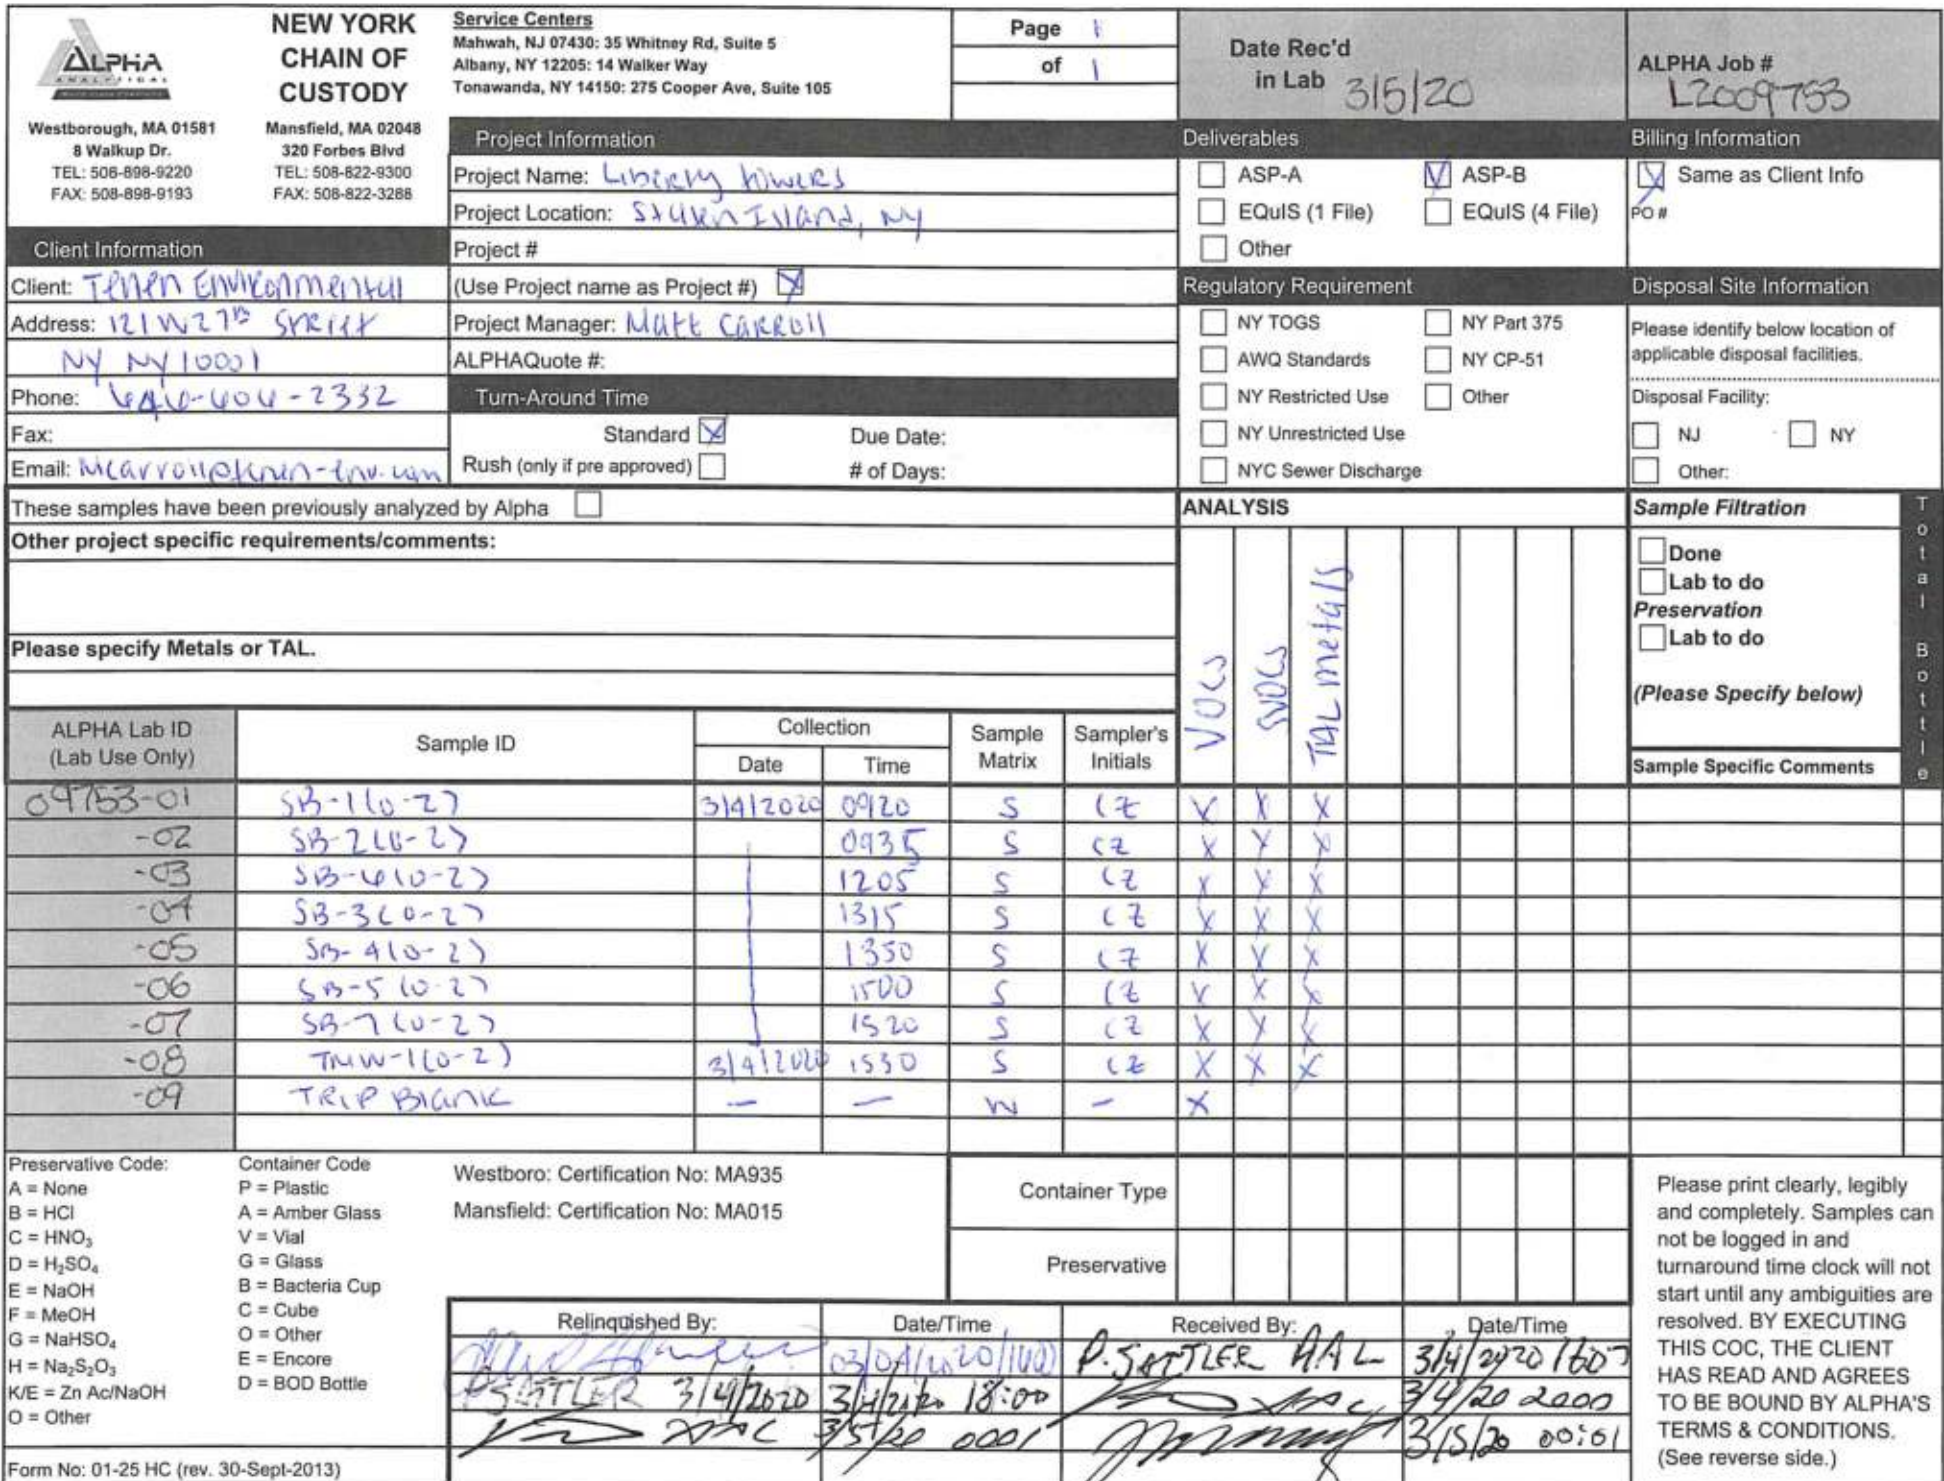 ALPHA
ANALYTICAL
NEW YORK
CHAIN OF
CUSTODY
Westborough, MA 01581
8 Walkup Dr.
TEL: 508-898-9220
FAX: 508-898-9193
Mansfield, MA 02048
320 Forbes Blvd
TEL: 508-822-9300
FAX: 508-822-3288
Service Centers
Mahwah, NJ 07430: 35 Whitney Rd, Suite 5
Albany, NY 12205: 14 Walker Way
Tonawanda, NY 14150: 275 Cooper Ave, Suite 105
Page 1
of 1
Date Rec'd
in Lab 3/5/20
ALPHA Job #
L2009753
Client Information
Client: Tenen Environmental
Address: 121 W 27th Street
NY NY 10001
Phone: 646-606-2332
Fax:
Email: mcarroll@tenen-env.com
Project Information
Project Name: Liberty Towers
Project Location: Staten Island, NY
Project #
(Use Project name as Project #) X
Project Manager: Matt Carroll
ALPHAQuote #:
Turn-Around Time
Standard X Due Date:
Rush (only if pre approved) # of Days:
Deliverables
ASP-A ASP-B
EQuIS (1 File) EQuIS (4 File)
Other
Regulatory Requirement
NY TOGS NY Part 375
AWQ Standards NY CP-51
NY Restricted Use Other
NY Unrestricted Use
NYC Sewer Discharge
Billing Information
X Same as Client Info
PO #
Disposal Site Information
Please identify below location of
applicable disposal facilities.
Disposal Facility:
NJ NY
Other:
These samples have been previously analyzed by Alpha
Other project specific requirements/comments:
Please specify Metals or TAL.
ANALYSIS
VOCs
SVOCs
TAL metals
Sample Filtration
Done
Lab to do
Preservation
Lab to do
(Please Specify below)
Sample Specific Comments
Total Bottle
ALPHA Lab ID
(Lab Use Only)
Sample ID
Collection
Date Time
Sample
Matrix
Sampler's
Initials
09753-01 SB-1(0-2) 3/4/2020 0920 S CZ X X X
-02 SB-2(0-2) 0935 S CZ X X X
-03 SB-6(0-2) 1205 S CZ X X X
-04 SB-3(0-2) 1315 S CZ X X X
-05 SB-4(0-2) 1350 S CZ X X X
-06 SB-5(0-2) 1500 S CZ X X X
-07 SB-7(0-2) 1520 S CZ X X X
-08 TMW-1(0-2) 3/4/2020 1530 S CZ X X X
-09 TRIP BLANK — — W — X
Preservative Code:
A = None
B = HCl
C = HNO3
D = H2SO4
E = NaOH
F = MeOH
G = NaHSO4
H = Na2S2O3
K/E = Zn Ac/NaOH
O = Other
Container Code
P = Plastic
A = Amber Glass
V = Vial
G = Glass
B = Bacteria Cup
C = Cube
O = Other
E = Encore
D = BOD Bottle
Westboro: Certification No: MA935
Mansfield: Certification No: MA015
Container Type
Preservative
Relinquished By: Date/Time Received By: Date/Time
03/04/2020 P. SATTLER AAL 3/4/2020
P SATTLER 3/4/2020 3/4/2020 18:00 3/4/20 2000
3/5/20 0001 3/5/20 00:01
Please print clearly, legibly
and completely. Samples can
not be logged in and
turnaround time clock will not
start until any ambiguities are
resolved. BY EXECUTING
THIS COC, THE CLIENT
HAS READ AND AGREES
TO BE BOUND BY ALPHA'S
TERMS & CONDITIONS.
(See reverse side.)
Form No: 01-25 HC (rev. 30-Sept-2013)